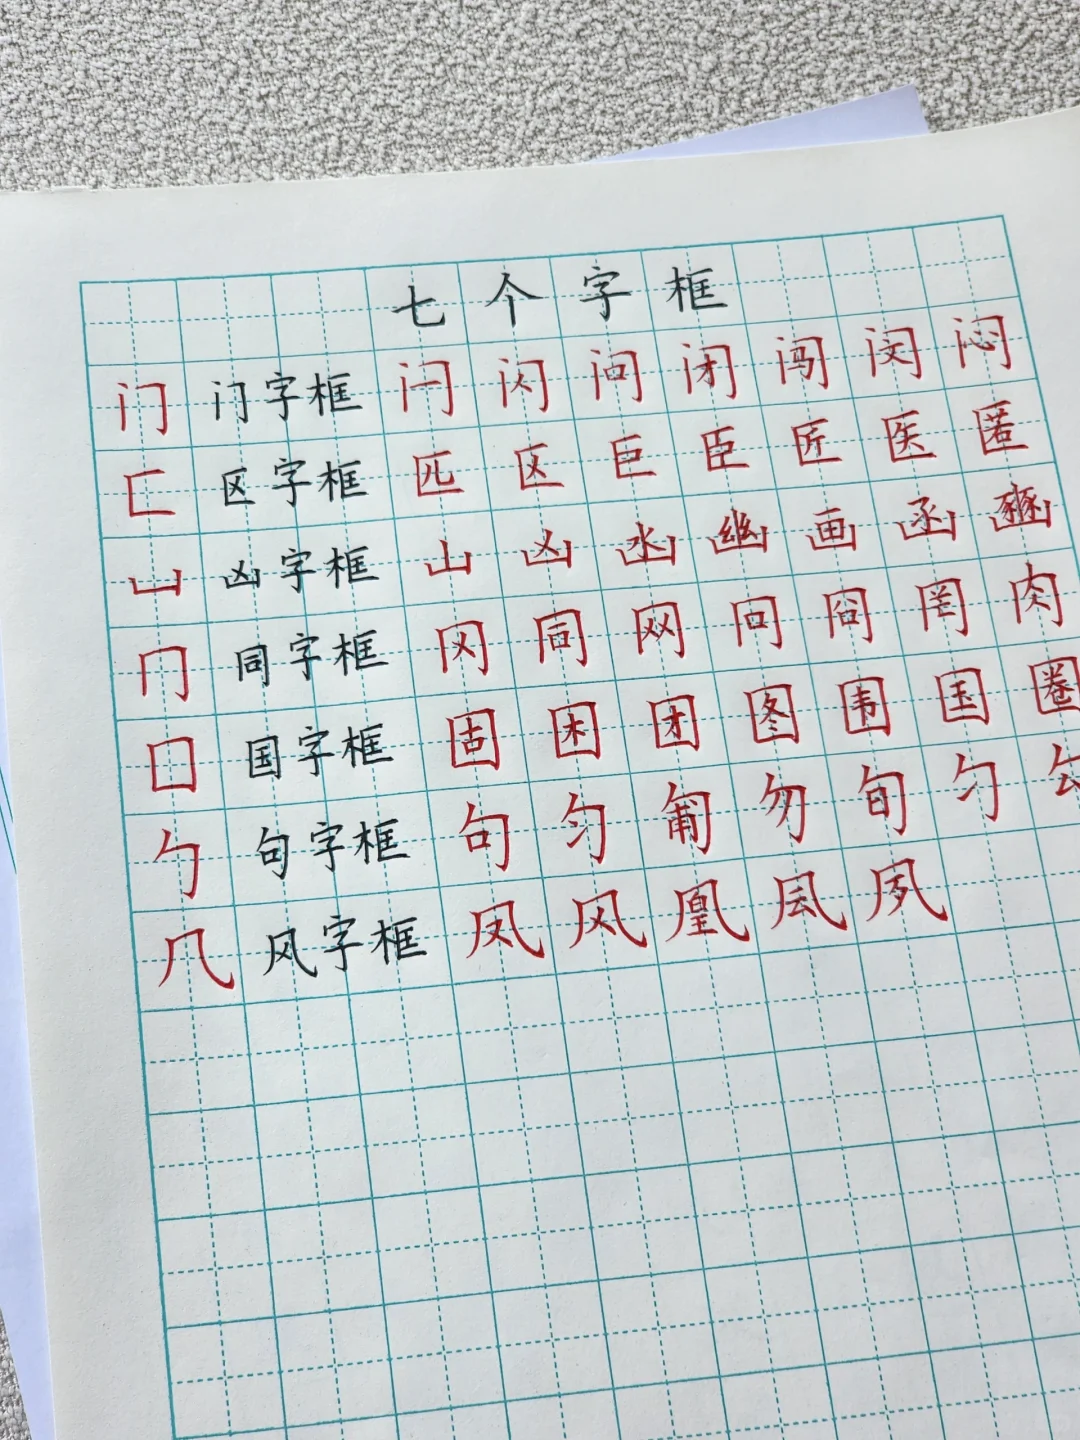 七个字框
门 门字框 闩 闪 问 闭 闯 闵 闷
匚 区字框 匹 区 巨 臣 匠 医 匿
凵 凶字框 山 凶 凼 幽 画 函 豳
冂 同字框 冈 同 网 冋 冏 罔 肉
囗 国字框 固 困 团 图 围 国 圈
勹 句字框 句 匀 匍 勿 旬 勺 勾
几 风字框 凤 风 凰 夙